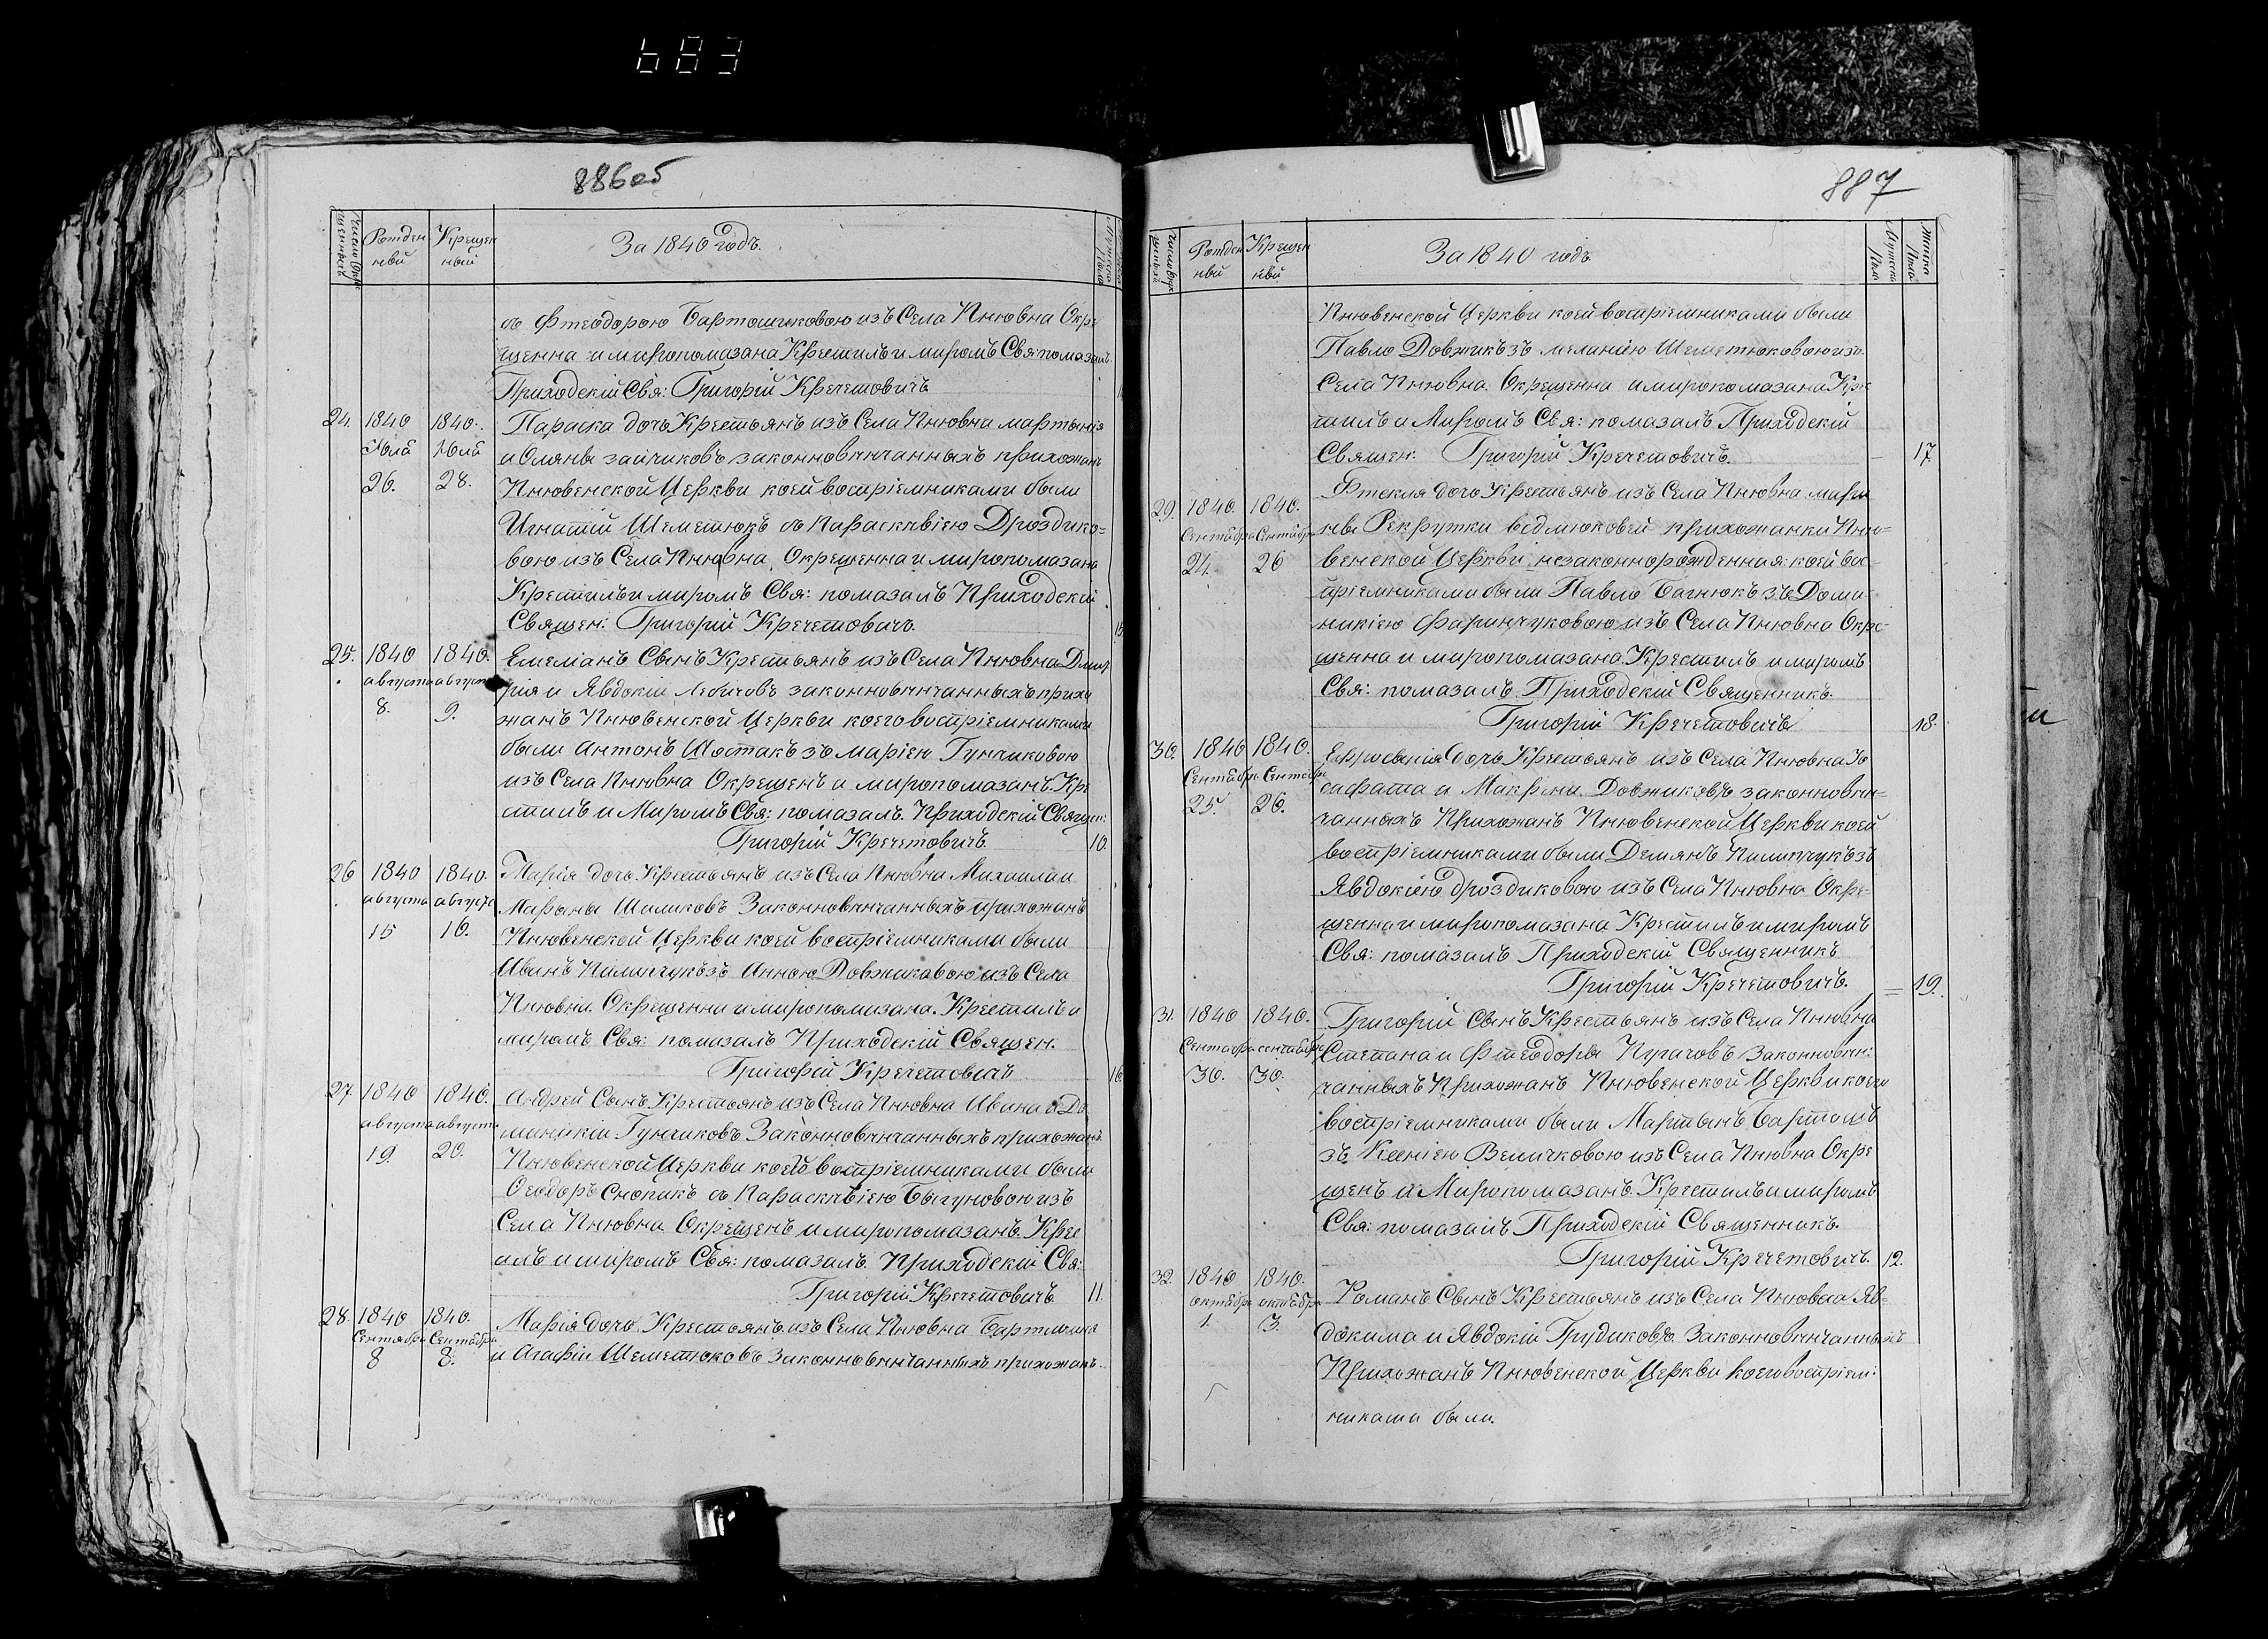 683
886об
Число Окре
щенныхъ
Рожден
ный
Крещен
ный
За 1840 годъ.
съ Фтеодорою Бартошиковою изъ Села Пнювна Окре
щенна и миропомазана Крестилъ и миромъ Свя: помазалъ
Приходскій Свя: Григорій Кречетовичъ
24. 1840 1840. Параска дочь Крестьянъ изъ Села Пнювна мартынія
Юлй Юлй и Оляны зайчиковъ законновѣнчанныхъ прихожанъ
26. 28. Пнювенской Церкви коей воспріемниками были
Игнатій Шеметюкъ съ Параскивіею Дроздико=
вою изъ Села Пнювна, Окрещенна и миропомазана
Крестилъ и миромъ Свя: помазалъ Приходскій
Священ: Григорій Кречетовичъ. 15
25. 1840 1840. Емеліанъ Сынъ Крестьянъ изъ Села Пнювна Дмит
августа августа рія и Явдокіи законновѣнчанныхъ прихо
8. 9. жанъ Пнювенской Церкви коего воспріемниками
были Антонъ Шостакъ зъ Маріею Гунчиковою
изъ Села Пнювна Окрещенъ и миропомазанъ. Кре
стилъ и Миромъ Свя: помазалъ Приходскій Священ:
Григорій Кречетовичъ. 10.
26 1840 1840. Марія дочь Крестьянъ изъ Села Пнювна Михаила и
августа августа Марьны Шаликовъ Законновѣнчанныхъ прихожанъ
15 16. Пнювенской Церкви коей воспріемниками были
Иванъ Пилипчукъ зъ Анною Довжикавою изъ Села
Пнювна. Окрещенна и миропомазана. Крестилъ и
миромъ Свя: помазалъ Приходскій Священ.
Григорій Кречетовичъ 16
27. 1840 1840. Андрей Сынъ Крестьянъ изъ Села Пнювна Ивана и До
августа августа миникіи Гунчиковъ Законновѣнчанныхъ прихожанъ.
19. 20. Пнювенской Церкви коего воспріемниками были
Ѳеодоръ Снопикъ съ Параскивіею Бегуновою изъ
Села Пнювна Окрещенъ и миропомазанъ. Крес
илъ и миромъ Свя: помазалъ Приходскій Свя:
Григорій Кречетовичъ 11.
28. 1840 1840. Марія дочь Крестьянъ изъ Села Пнювна Бартломея
Сентября Сентября и Агафіи Шеметюковъ Законновѣнчанныхъ прихожанъ.
8 8.
887
Число Окре
щенныхъ
Рожден
ный
Крещен
ный
За 1840 годъ
Мужеска
Пола
Женска
Пола
Пнювенской Церкви коей воспріемниками были
Павло Довжикъ зъ меланіею Шеметюковою изъ
Села Пнювна. Окрещенна и миропомазана Кре
тилъ и Миромъ Свя: помазалъ Приходскій
Священ: Григорій Кречетовичъ. 17.
29. 1840. 1840. Фтекля дочь Крестьянъ изъ Села Пнювна мари
Сентября Сентября нны Рекрутки ведмюковой прихожанки Пню=
24. 26 венской Церкви незаконнорожденная: коей вос=
пріемниками были Павло Багнюкъ зъ Доми
никіею Фаринчуковою изъ Села Пнювна Окре=
щенна и миропомазана. Крестилъ и миромъ
Свя: помазалъ Приходскій Священникъ
Григорій Кречетовичъ 18.
30. 1840 1840. Ефросинія Дочь Крестьянъ изъ Села Пнювна Ю
Сентября Сентября сафата и Макрины Довжиковъ законновѣн=
25. 26. чанныхъ Прихожанъ Пнювенской Церкви коей
воспріемниками были Демянъ Пилипчукъ зъ
Явдокіею Дроздиковою изъ Села Пнювна Окре=
щенна и миропомазана Крестилъ и миромъ
Свя: помазалъ Приходскій Священникъ
Григорій Кречетовичъ. 19.
31. 1840 1840. Григорій Сынъ Крестьянъ изъ Села Пнювна
Сентября сентября Степана и Фтеодоры Пугачовъ Законновѣн:
30. 30. чанныхъ Прихожанъ Пнювенской Церкви коего
воспріемниками были Мартынъ Бартошъ
зъ Ксеніею Величковою изъ Села Пнювна Окре
щенъ и Миропомазанъ. Крестилъ и миромъ
Свя: помазалъ Приходскій Священникъ.
Григорій Кречетовичъ. 12.
32. 1840 1840. Романъ Сынъ Крестьянъ изъ Села Пнювна Яв=
октября октября докима и Явдокіи Грудиковъ. Законновѣнчанныхъ
1. 3. Прихожанъ Пнювенской Церкви коего воспріем:
никами были.